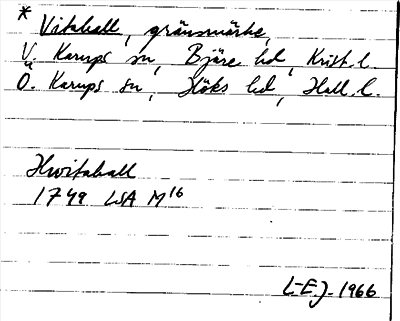 * Vitahall, gränsmärke,
V. Karups sn, Bjäre hd, Krist. l.
Ö. Karups sn, Höks hd, Hall. l.
Hwitahall
1749 LSA M16
L-E.J. 1966